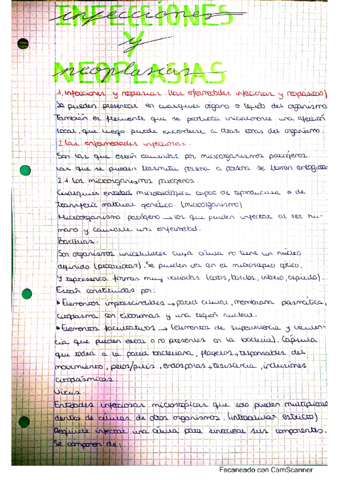 INFECCIONES
Y
NEOPLASIAS
1. Infecciones y neoplasias (las enfermedades infecciosas y neoplasias)
Se pueden presentar en cualquier órgano o tejido del organismo
También es frecuente que se produzca inicialmente una afección
local, que luego puede extenderse a otras zonas del organismo.
2 Las enfermedades infecciosas.
Son las que están causadas por microorganismos patógenos
Las que se pueden transmitir persona a persona se llaman contagiosas
2.1 Los microorganismos patógenos
Cualquier entidad microbiológica capaz de reproducirse o de
transferir material genético. (microorganismo)
Microorganismo patógeno → los que pueden infectar al ser hu-
mano y causarle una enfermedad.
Bacterias.
Son organismos unicelulares cuya célula no tiene un núcleo
definido (procariotas). Se pueden ver en el microscopio óptico.
Y representa formas muy variadas (cocos, bacilos, vibrio, espirilo).
Están constituidas por:
• Elementos imprescindibles → pared celular, membrana plasmática,
citoplasma con ribosomas y una región nuclear.
• Elementos facultativos → (elementos de supervivencia y virulen-
cia que pueden estar o no presentes en la bacteria). Cápsula
que rodea a la pared bacteriana, flagelos, responsables del
movimiento, pelos/pilis, endosporas, inclusiones
citoplásmicas.
Virus
Entidades infecciosas microscópicas que solo pueden multiplicarse
dentro de células de otros organismos. (intracelular estricto)
Requiere infectar una célula para sintetizar sus componentes.
Se componen de:
Escaneado con CamScanner